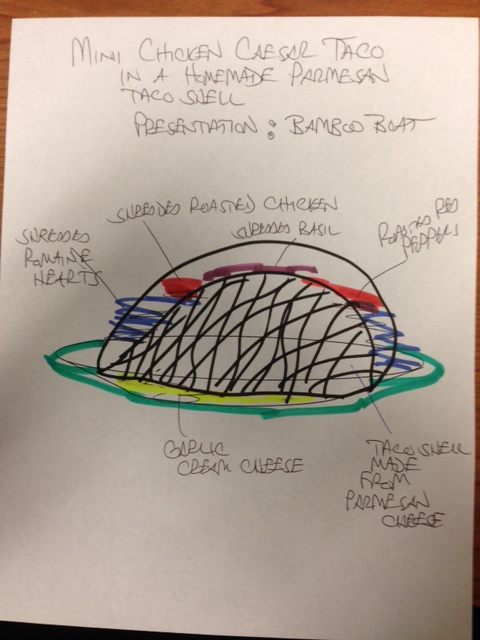 MINI CHICKEN CAESAR TACO
IN A HOMEMADE PARMESAN
TACO SHELL
PRESENTATION : BAMBOO BOAT
SHREDDED ROASTED CHICKEN
SHREDDED BASIL
ROASTED RED
PEPPERS
SHREDDED
ROMAINE
HEARTS
GARLIC
CREAM CHEESE
TACO SHELL
MADE
FROM
PARMESAN
CHEESE